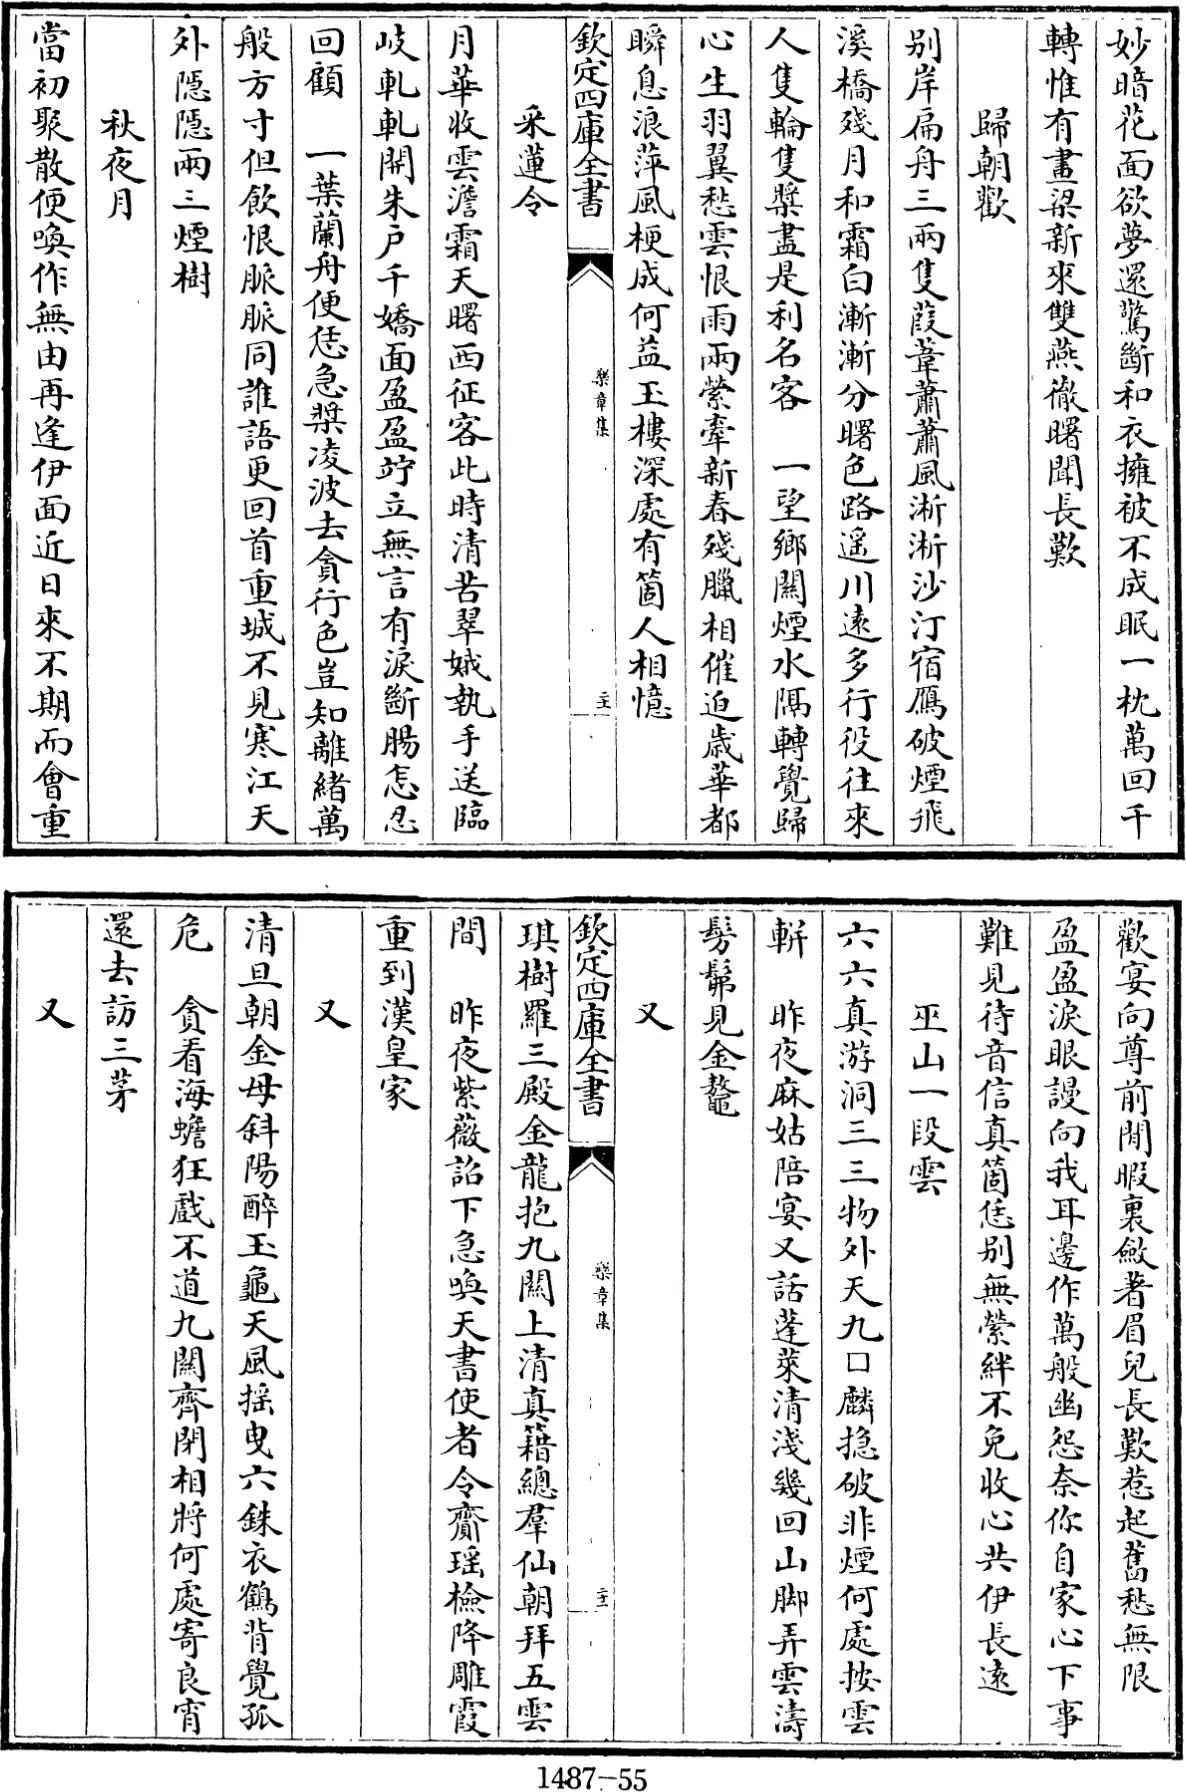 妙暗花面欲夢還驚斷和衣擁被不成眠一枕萬回千
轉惟有畫梁新來雙燕徹曙聞長歎
歸朝歡
别岸扁舟三兩隻葭葦蕭蕭風淅淅沙汀宿鴈破煙飛
溪橋殘月和霜白漸漸分曙色路遥川逺多行役往來
人隻輪隻槳盡是利名客　一望鄉關煙水隔轉覺歸
心生羽翼愁雲恨雨兩縈牽新春殘臘相催迫歳華都
瞬息浪萍風梗成何益玉樓深處有箇人相憶
欽定四庫全書
樂章集
采蓮令
月華收雲澹霜天曙西征客此時清苦翠娥執手送臨
岐軋軋開朱户千嬌面盈盈竚立無言有淚斷腸怎忍
回顧　一葉蘭舟便恁急槳凌波去貪行色豈知離緒萬
般方寸但飲恨脈脈同誰語更回首重城不見寒江天
外隱隱兩三煙樹
秋夜月
當初聚散便喚作無由再逢伊面近日來不期而會重
歡宴向尊前閒暇裏斂著眉兒長歎惹起舊愁無限
盈盈淚眼謾向我耳邊作萬般幽怨奈你自家心下事
難見待音信真箇恁别無縈絆不免收心共伊長逺
巫山一段雲
六六真游洞三三物外天九口麟搃破非煙何處按雲
軿　昨夜麻姑陪宴又話蓬萊清淺幾回山脚弄雲濤
髣髴見金鼇
又
欽定四庫全書
樂章集
琪樹羅三殿金龍抱九關上清真籍總羣仙朝拜五雲
間　昨夜紫薇詔下急喚天書使者令齎瑶檢降雕霞
重到漢皇家
又
清旦朝金母斜陽醉玉龜天風摇曳六銖衣鶴背覺孤
危　貪看海蟾狂戲不道九關齊閉相將何處寄良宵
還去訪三茅
又
1487-55